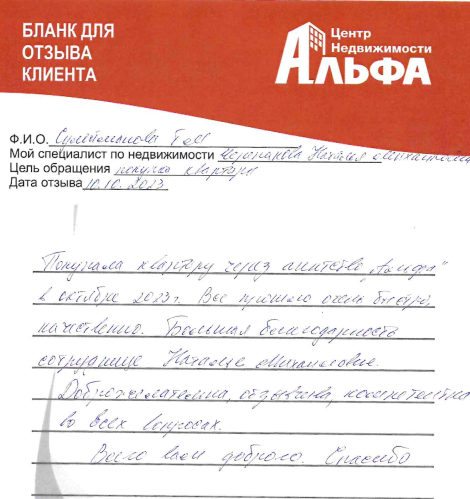 БЛАНК ДЛЯ
ОТЗЫВА
КЛИЕНТА
Центр
Недвижимости
АЛЬФА
Ф.И.О. Сулейманова Г.М
Мой специалист по недвижимости Наталия
Цель обращения покупка квартиры
Дата отзыва 10.10.2023
Покупала квартиру через агентство "Альфа"
в октябре 2023г. Все прошло очень быстро,
качественно. Большая благодарность
сотруднице Наталье Михайловне.
Доброжелательна, отзывчива, компетентна
во всех вопросах.
Всего вам доброго. Спасибо